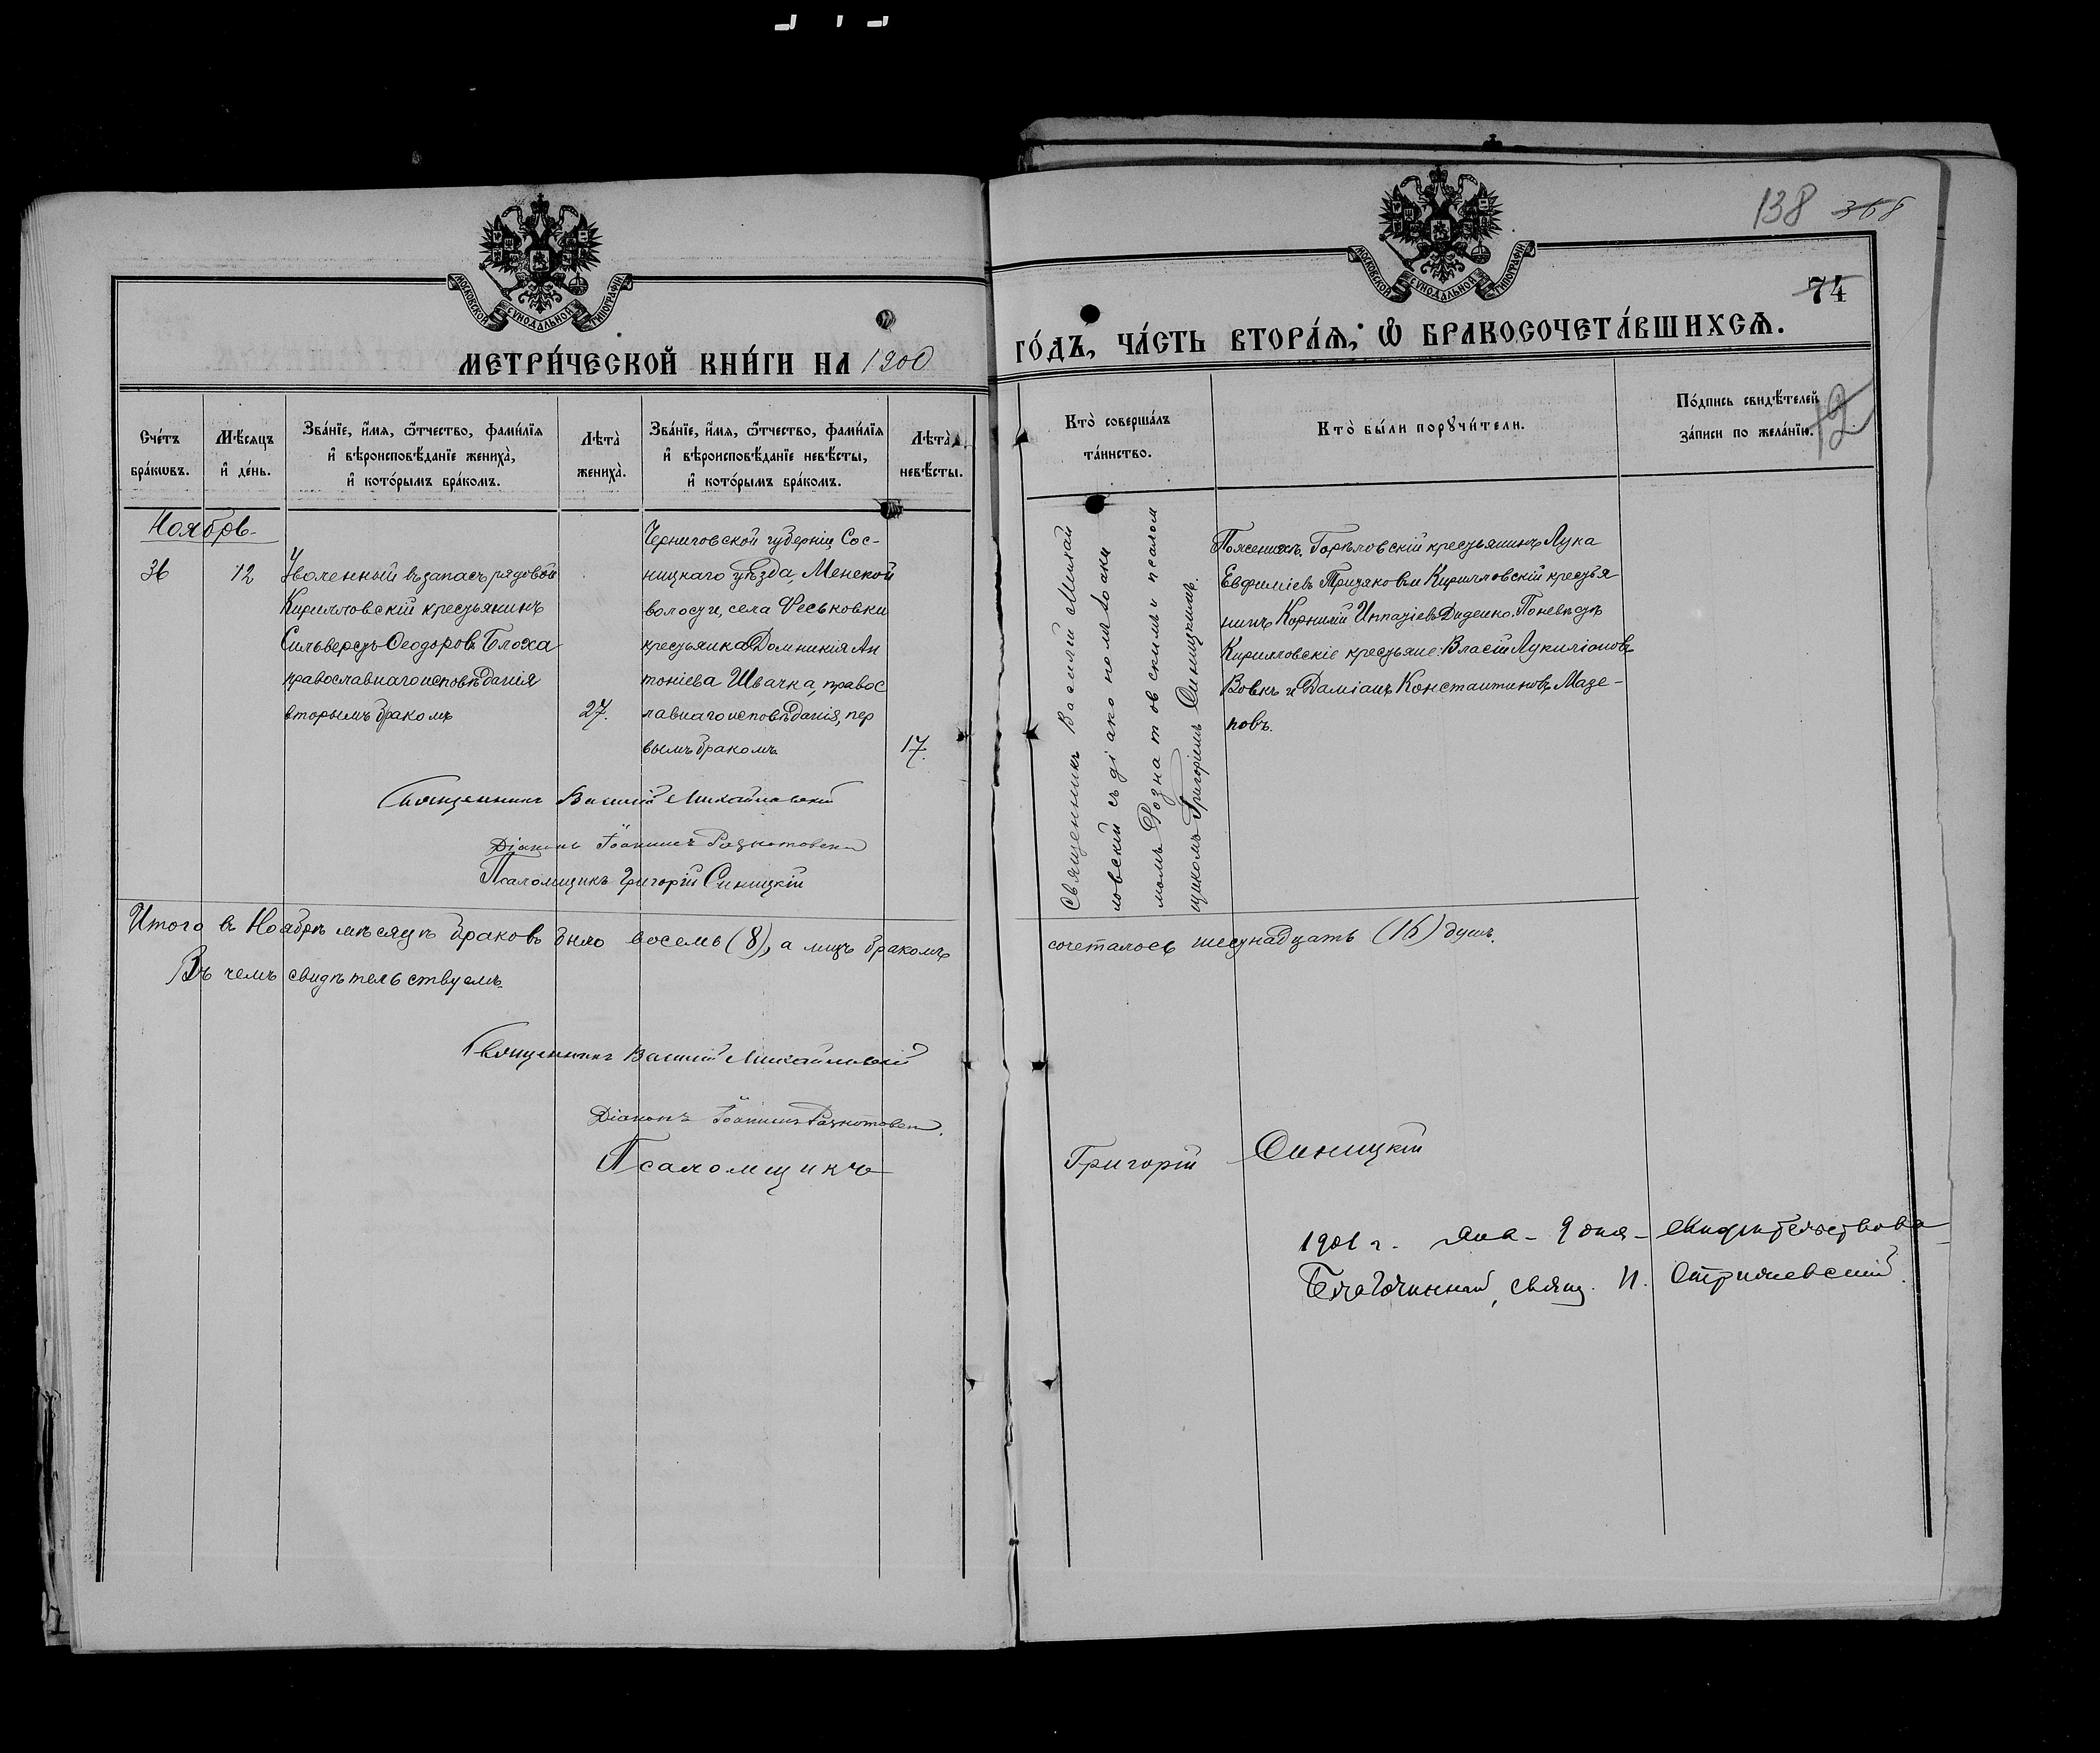 138 368
МОСКОВСКОЙ СѴНОДАЛЬНОЙ ТИПОГРАФІИ
МОСКОВСКОЙ СѴНОДАЛЬНОЙ ТИПОГРАФІИ
74
МЕТРИ́ЧЕСКОЙ КНИ́ГИ НА 1900
ГО́ДЪ, ЧА́СТЬ ВТОРА́Ѧ, Ѽ БРАКОСОЧЕТА́ВШИХСѦ.
Сче́тъ
бра́кѡвъ.
Мѣ́сѧцъ
и҆ де́нь.
Зва́нїе, и҆́мѧ, ѻ҆́тчество, фами́лїѧ
и҆ вѣроисповѣ́данїе жениха̀,
и҆ кото́рымъ бра́комъ.
Лѣта̀
жениха̀.
Зва́нїе, и҆́мѧ, ѻ҆́тчество, фами́лїѧ
и҆ вѣроисповѣ́данїе невѣ́сты,
и҆ кото́рымъ бра́комъ.
Лѣта̀
невѣ́сты.
Кто̀ соверша́лъ
та́инство.
Кто̀ бы́ли порꙋчи́тели.
По́дпись свидѣ́телей
за́писи по жела́нїю.
12
Ноябрь
36
12
Уволенный въ запасъ рядовой
Кирилловскій крестьянинъ
Сильверстъ Ѳеодоровъ Блоха
православнаго исповѣданія
вторымъ бракомъ
27.
Черниговской губерніи Сос-
ницкаго уѣзда, Менской
волости, села Феськовки
крестьянка Домникія Ан
тоніева Швачка, правос
лавнаго исповѣданія, пер
вымъ бракомъ
17.
Священникъ Василій Михай
ловскій съ діакономъ Іоанн
омъ Рознатовскимъ и псалом
щикомъ Григоріемъ Синицкимъ.
По женихѣ: Горѣловскій крестьянинъ Лука
Евфиміевъ Третяковъ и Кирилловскій крестья
нинъ Корнилій Ипатіевъ Диденко. По невѣстѣ
Кирилловскіе крестьяне: Власій Лукиліановъ
Вовкъ и Даміанъ Константиновъ Мазе-
повъ.
Священникъ Василій Михайловскій
Діаконъ Іоаннъ Рознатовскій
Псаломщикъ Григорій Синицкій
Итого въ Ноябрѣ мѣсяцѣ браковъ было восемь (8), а лицъ бракомъ
сочеталось шестнадцать (16) душъ.
Въ чемъ свидѣтельствуемъ.
Священникъ Василій Михайловскій
Діаконъ Іоаннъ Рознатовскій.
Псаломщикъ Григорій Синицкій
1901 г. Янв- 9 дня- свидѣтельствова
Благочинный, свящ. И.